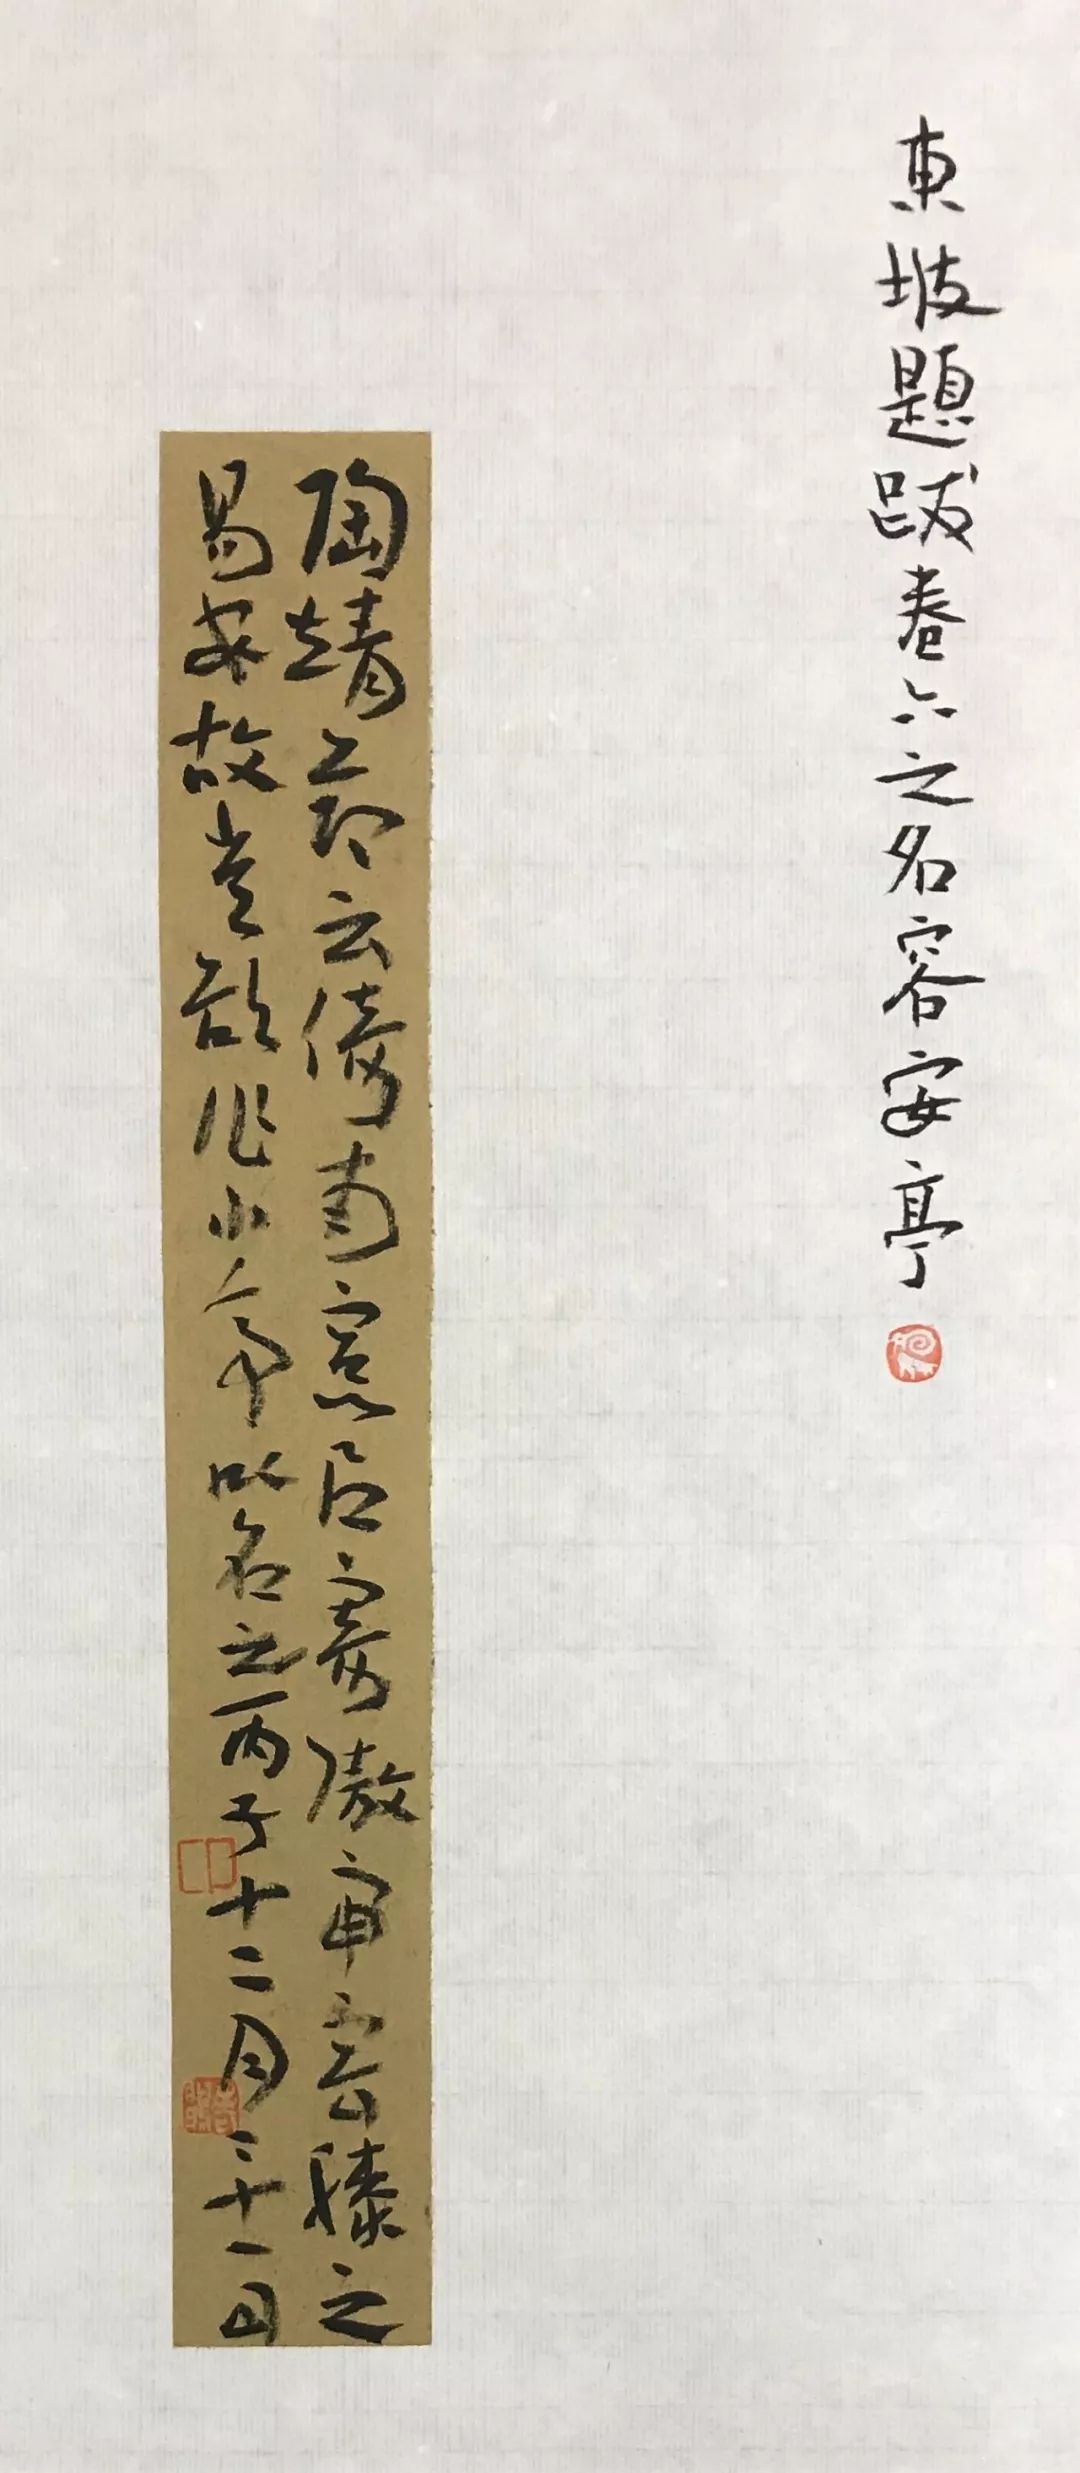 東坡題跋卷六之名容安亭
陶靖節云倚南窓以寄傲審容膝之
易安故常欲作小亭以名之丙子十二月二十一日